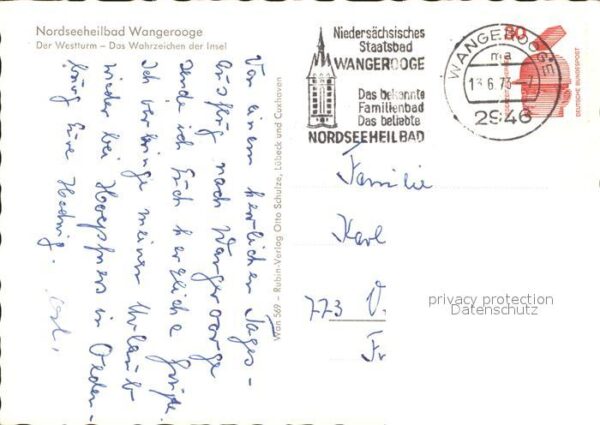 Nordseeheilbad Wangerooge
Der Westturm – Das Wahrzeichen der Insel
Von einem herrlichen Tages-
ausflug nach Wangerooge
sende ich Euch herzliche Grüße.
Ich verbringe meinen Urlaub
wieder bei Hoepfners in Olden-
burg Eure Hedwig.
Wan 569 – Rubin-Verlag Otto Schulze, Lübeck und Cuxhaven
Niedersächsisches
Staatsbad
WANGEROOGE
Das bekannte
Familienbad
Das beliebte
NORDSEEHEILBAD
WANGEROOGE
ma
13.6.73
2946
DEUTSCHE BUNDESPOST
Familie
Karl
773 V.
Fr
privacy protection
Datenschutz